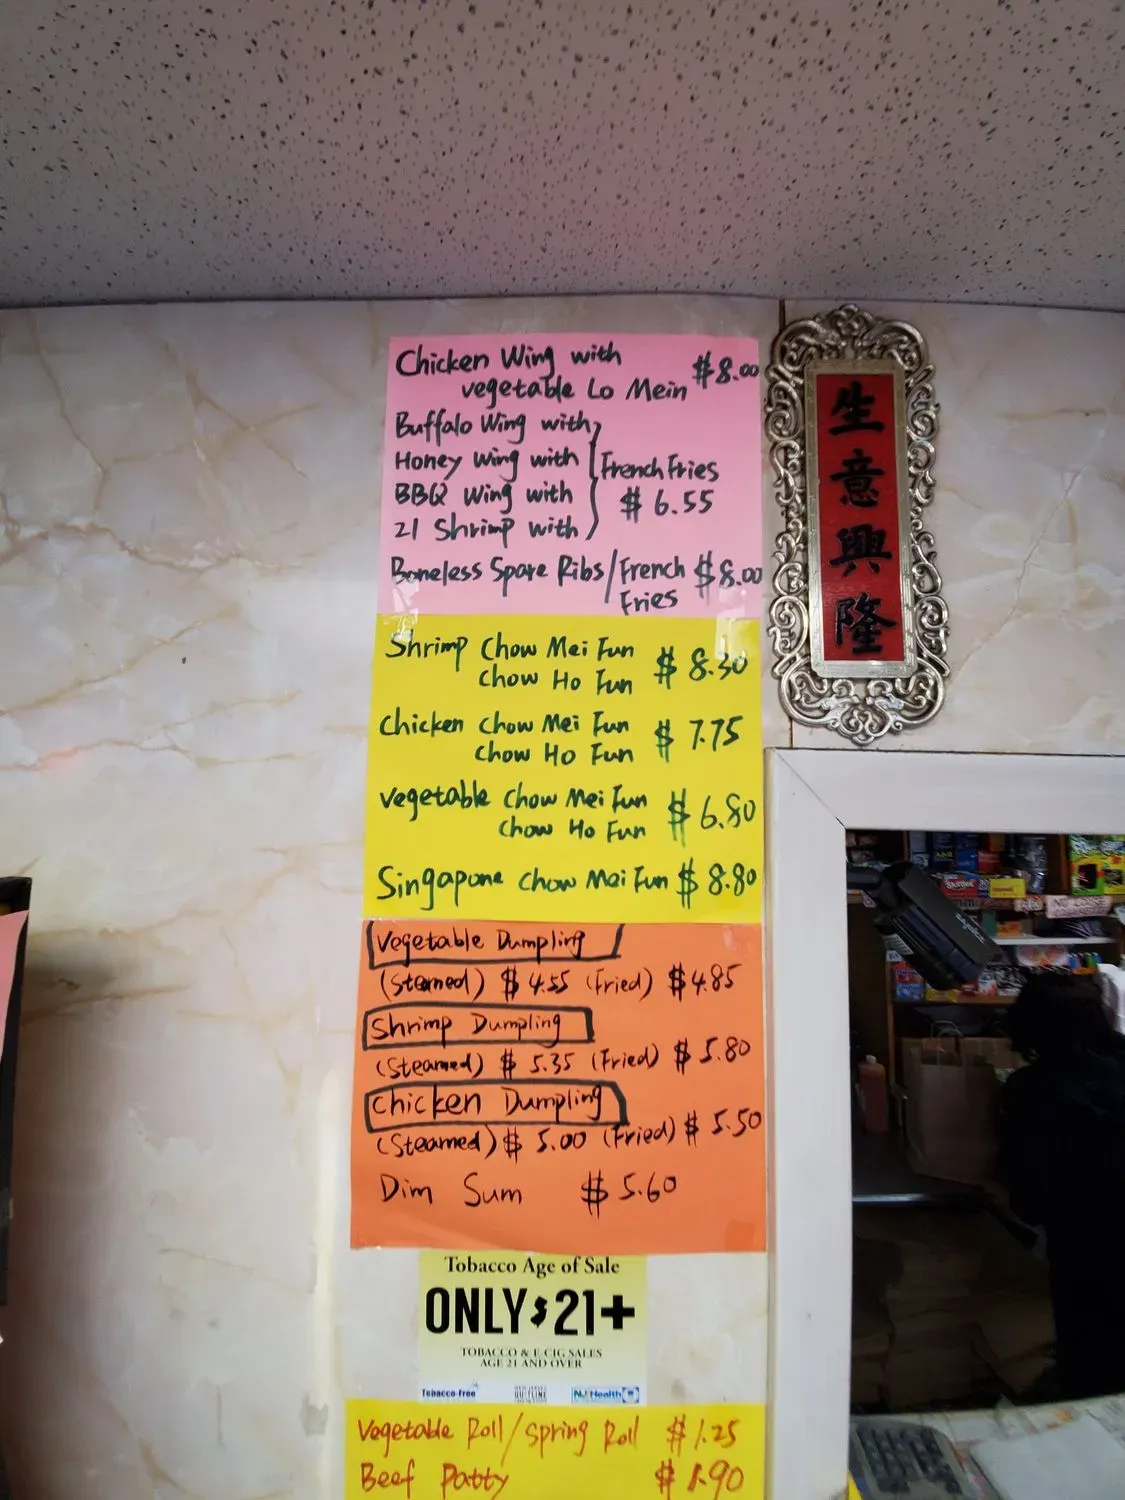 Chicken Wing with
vegetable Lo Mein $8.00
Buffalo Wing with
Honey Wing with
BBQ Wing with
21 Shrimp with
French Fries
$6.55
Boneless Spare Ribs/French Fries $8.00
Shrimp Chow Mei Fun
Chow Ho Fun $8.30
Chicken Chow Mei Fun
Chow Ho Fun $7.75
Vegetable Chow Mei Fun
Chow Ho Fun $6.80
Singapone Chow Mei Fun $8.80
Vegetable Dumpling
(Steamed) $4.55 (Fried) $4.85
Shrimp Dumpling
(Steamed) $5.35 (Fried) $5.80
Chicken Dumpling
(Steamed) $5.00 (Fried) $5.50
Dim Sum $5.60
Tobacco Age of Sale
ONLY 21+
TOBACCO & E-CIG SALES
AGE 21 AND OVER
Tobacco-Free
QUITLINE
NJ Health
Vegetable Roll/Spring Roll $1.25
Beef Patty $1.90
生意興隆
Skittles